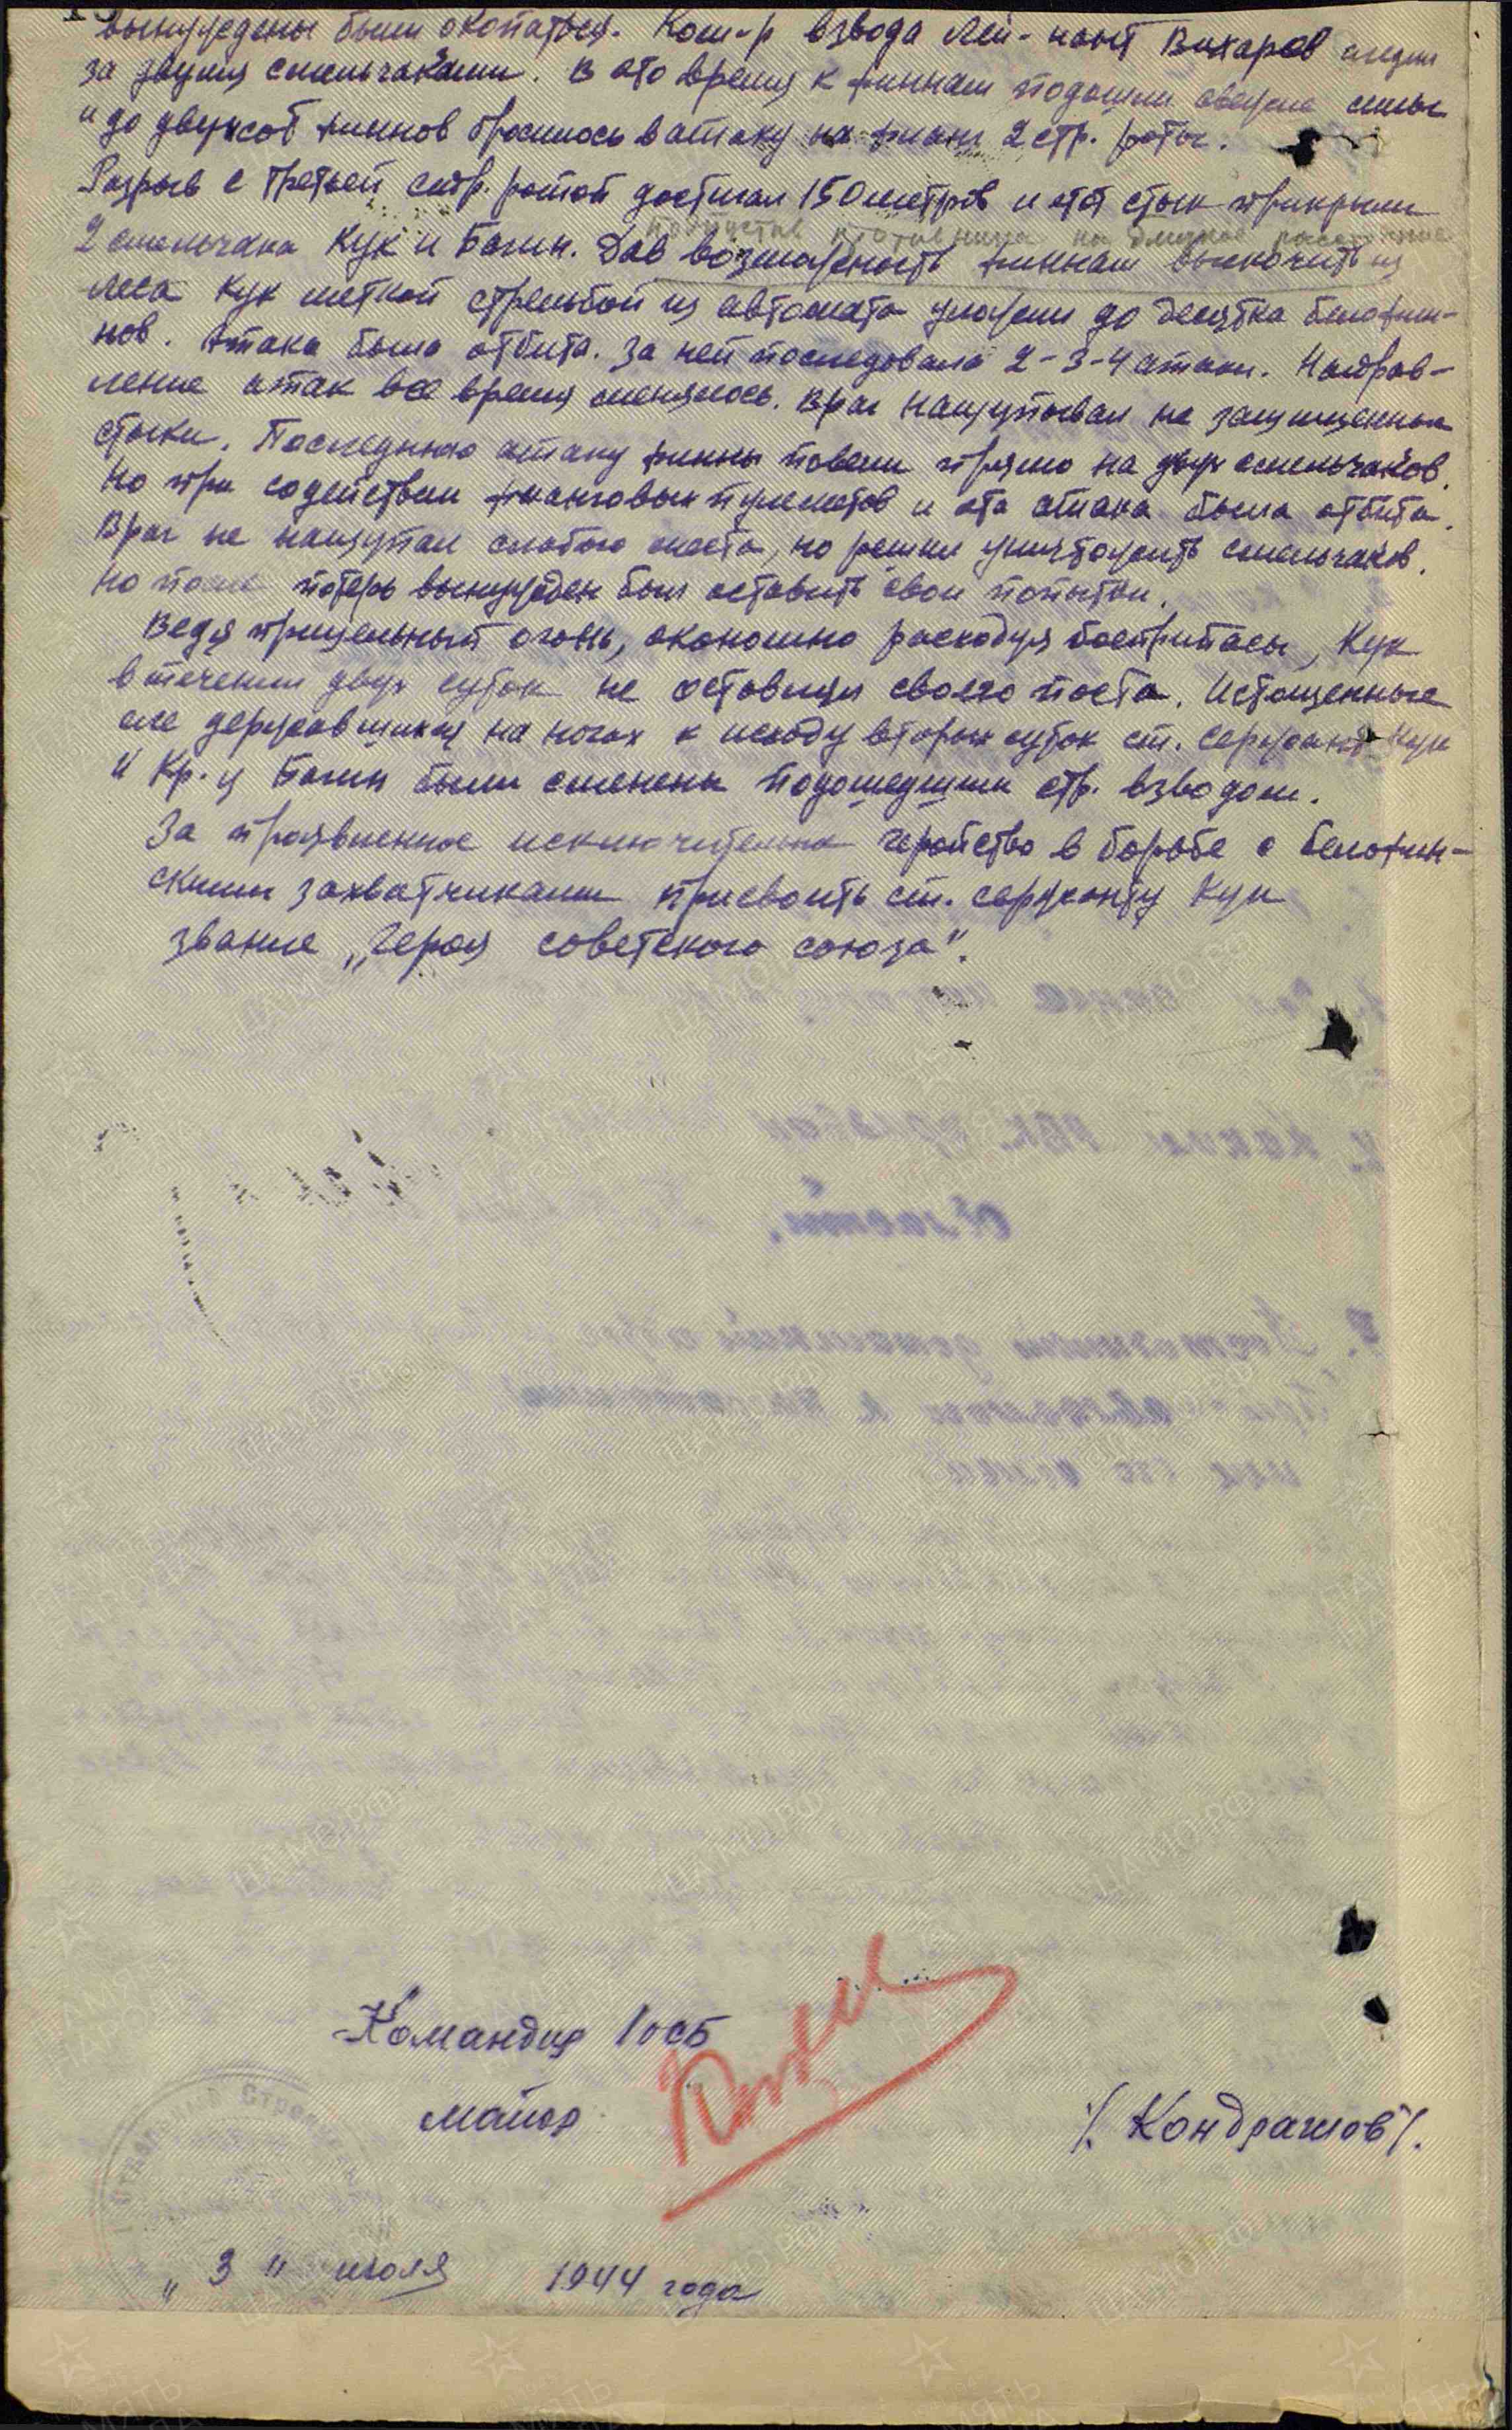 вынуждены были окопаться. Ком-р взвода лей-нант Вихарев следил
за двумя смельчаками. В это время к финнам подошли свежие силы
и до двухсот финнов бросилось в атаку на фланг 2 стр. роты.
Разрыв с третьей стр. ротой достигал 150 метров и этот стык прикрыли
подпустив противника на близкое расстояние
2 смельчака Кук и Багин. Дав возможность финнам выскочить из
леса Кук меткой стрельбой из автомата уложил до десятка белофин-
нов. Атака была отбита. За ней последовала 2-3-4 атаки. Направ-
ление атак все время менялось. Враг нащупывал не защищенные
стыки. Последнюю атаку финны повели прямо на двух смельчаков.
Но при содействии фланговых пулеметов и эта атака была отбита.
Враг не нащупал слабого места, но решил уничтожить смельчаков.
Но после потерь вынужден был оставить свои попытки.
Ведя прицельный огонь, экономно расходуя боеприпасы, Кук
в течении двух суток не оставлял своего поста. Истощенные
еле державшихся на ногах к исходу вторых суток ст. сержант Кук
и Кр-ц Багин были сменены подошедшим стр. взводом.
За проявленное исключительно геройство в борьбе с белофин-
скими захватчиками присвоить ст. сержанту Кук
звание „Героя советского союза".
Командир 1 осб
майор
/. Кондрашов /.
„ 3 " июля 1944 года